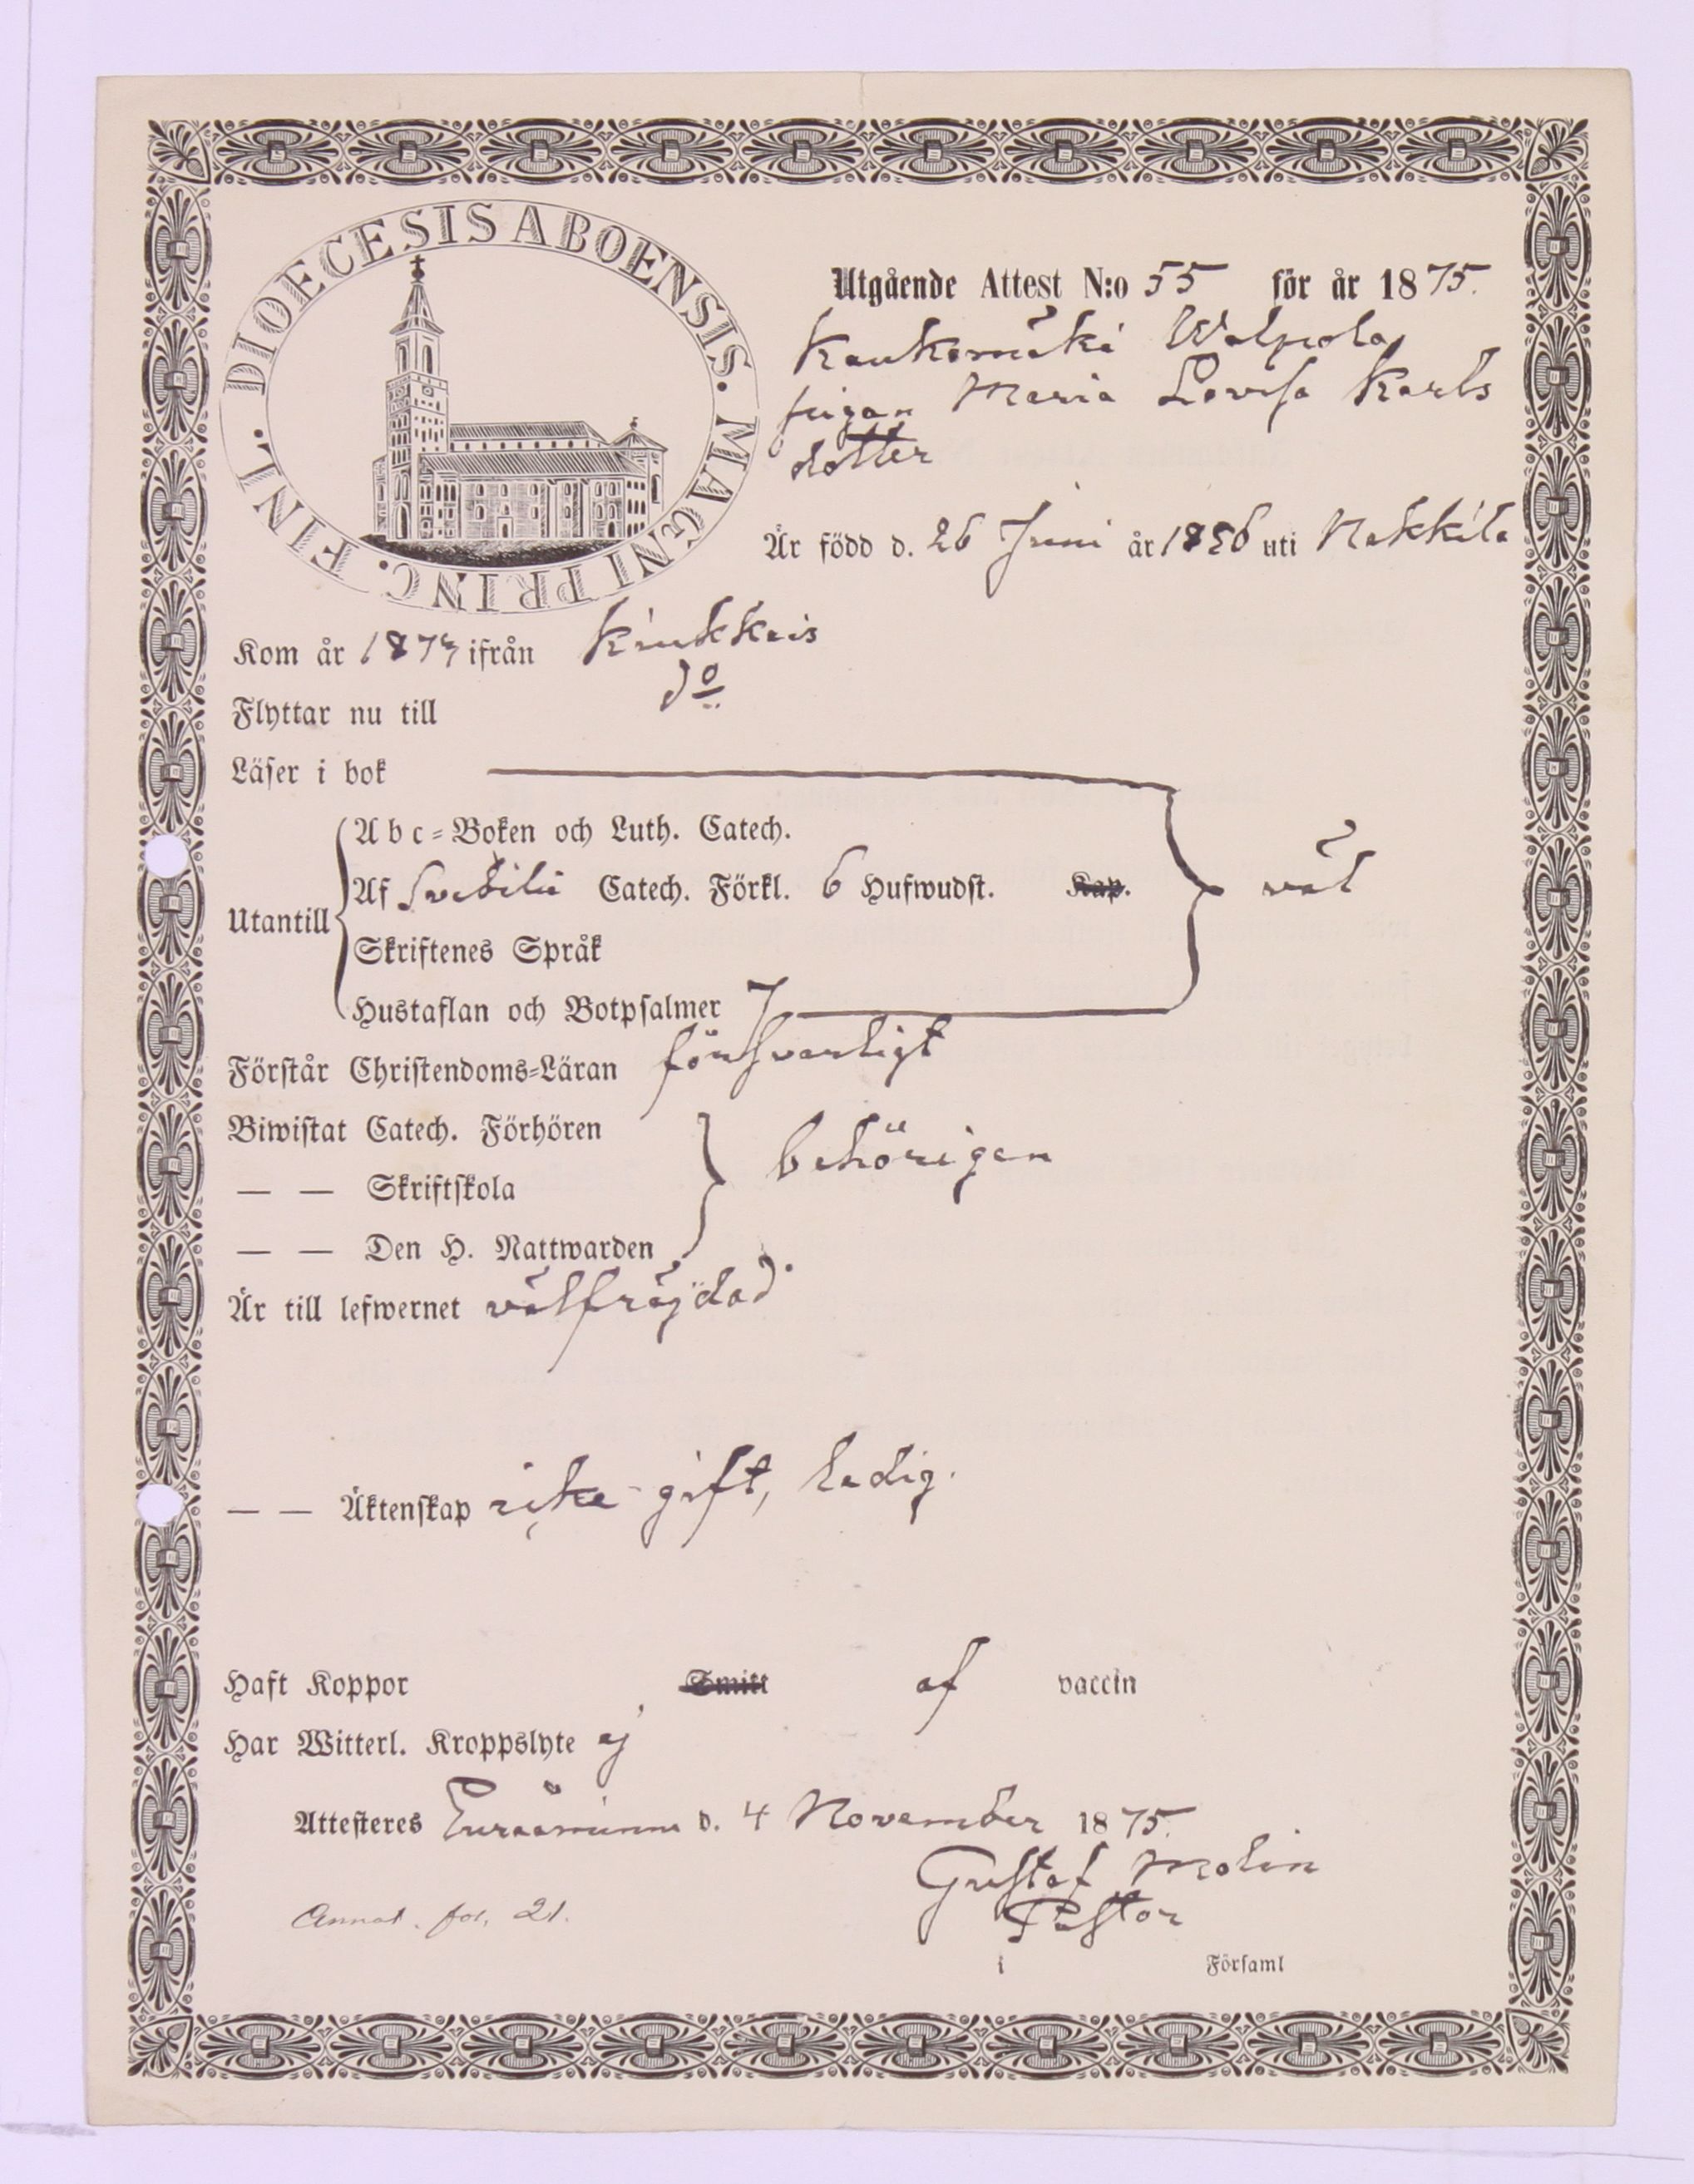 DIOECESIS ABOENSIS. MAGNI PRINC. FINL.
Utgående Attest N:o 55 för år 1875.
Kaukomäki Walpola
pigan Maria Lovisa Karls
dotter
Är född d. 26 Juni år 1856 uti Nakkila
Kom år 1874 ifrån Kiukkais
Flyttar nu till do
Läser i bok
Abc-Boken och Luth. Catech.
Utantill Af Svebilii Catech. Förkl. 6 Hufwudst. Kap. väl
Skriftenes Språk
Hustaflan och Botpsalmer
Förstår Christendoms-Läran försvarligt
Biwistat Catech. Förhören
— — Skriftskola behörigen
— — Den H. Nattwarden
Är till lefwernet välfräjdad.
— — Äktenskap icke gift, ledig.
Haft Koppor Smitt af vaccin
Har Witterl. Kroppslyte ej
Attesteres Euraåminne d. 4 November 1875.
Gustaf Molin
Annot. fol. 21. Pastor
i Församl